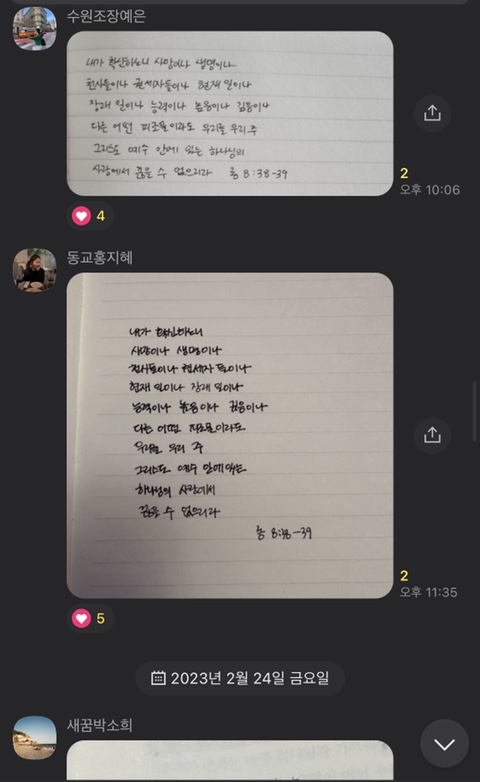 수원조장예은
내가 확신하노니 사망이나 생명이나
천사들이나 권세자들이나 현재 일이나
장래 일이나 능력이나 높음이나 깊음이나
다른 어떤 피조물이라도 우리를 우리 주
그리스도 예수 안에 있는 하나님의
사랑에서 끊을 수 없으리라 롬 8:38-39
2
오후 10:06
4
동교홍지혜
내가 확신하노니
사망이나 생명이나
천사들이나 권세자들이나
현재 일이나 장래 일이나
능력이나 높음이나 깊음이나
다른 어떤 피조물이라도
우리를 우리 주
그리스도 예수 안에 있는
하나님의 사랑에서
끊을 수 없으리라
롬 8:38-39
2
오후 11:35
5
2023년 2월 24일 금요일
새꿈박소희